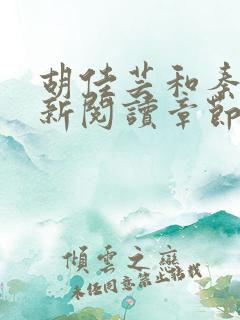 胡佳芸和秦
新閱讀章節
傾雲之戀
未經同意禁止轉載